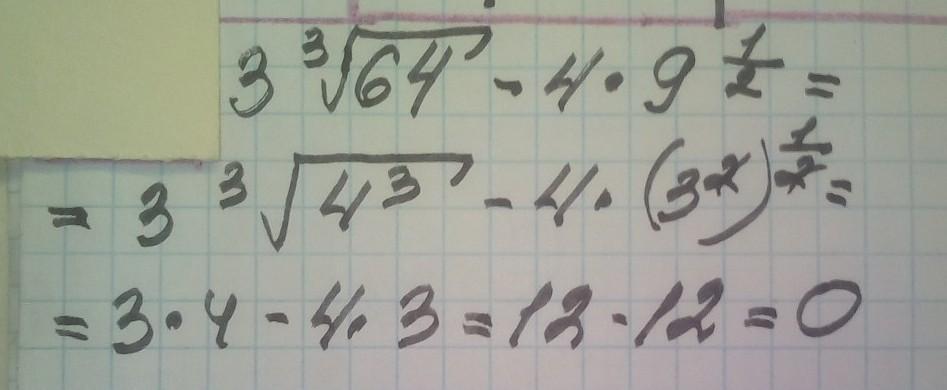 3 ∛64 - 4 · 9^(1/2) =
= 3 ∛(4³) - 4 · (3²)^(1/2) =
= 3 · 4 - 4 · 3 = 12 - 12 = 0